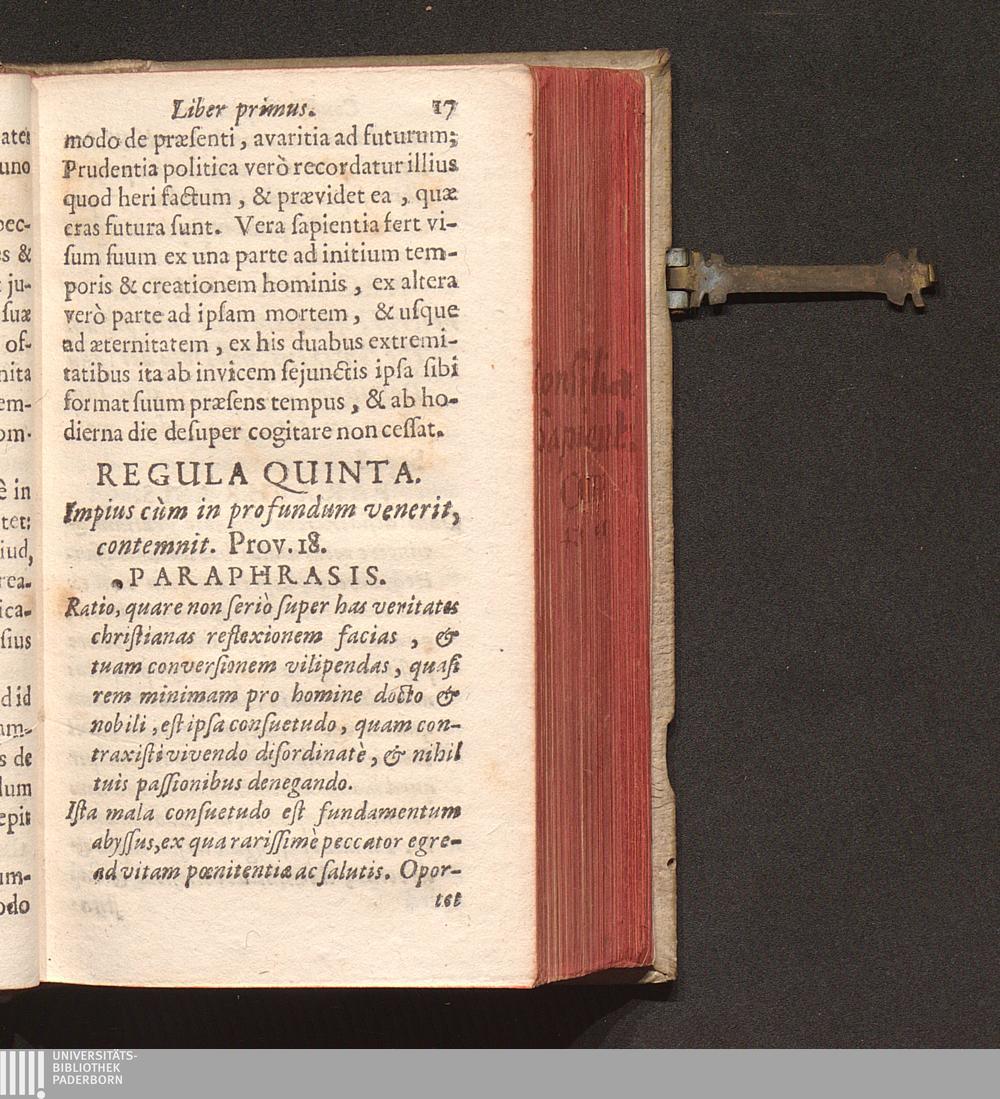 Liber primus. 17
modo de præſenti, avaritia ad futurum;
Prudentia politica verò recordatur illius
quod heri factum, & prævidet ea, quæ
cras futura ſunt. Vera ſapientia fert vi-
ſum ſuum ex una parte ad initium tem-
poris & creationem hominis, ex altera
verò parte ad ipſam mortem, & uſque
ad æternitatem, ex his duabus extremi-
tatibus ita ab invicem ſejunctis ipſa ſibi
format ſuum præſens tempus, & ab ho-
dierna die deſuper cogitare non ceſſat.
REGULA QUINTA.
Impius cùm in profundum venerit,
contemnit. Prov. 18.
PARAPHRASIS.
Ratio, quare non ſeriò ſuper has veritates
chriſtianas reflexionem facias, &
tuam converſionem vilipendas, quaſi
rem minimam pro homine docto &
nobili, eſt ipſa conſuetudo, quam con-
traxiſti vivendo diſordinatè, & nihil
tuis paſſionibus denegando.
Iſta mala conſuetudo eſt fundamentum
abyſſus, ex qua rariſſimè peccator egre-
ad vitam pœnitentiæ ac ſalutis. Opor-
tet
ates
uno
pec-
es &
ju-
ſuæ
of-
nita
em-
om-
è in
tet:
iud,
rea-
ica-
ſius
d id
am-
s de
dum
epit
um-
odo
UNIVERSITÄTS-
BIBLIOTHEK
PADERBORN